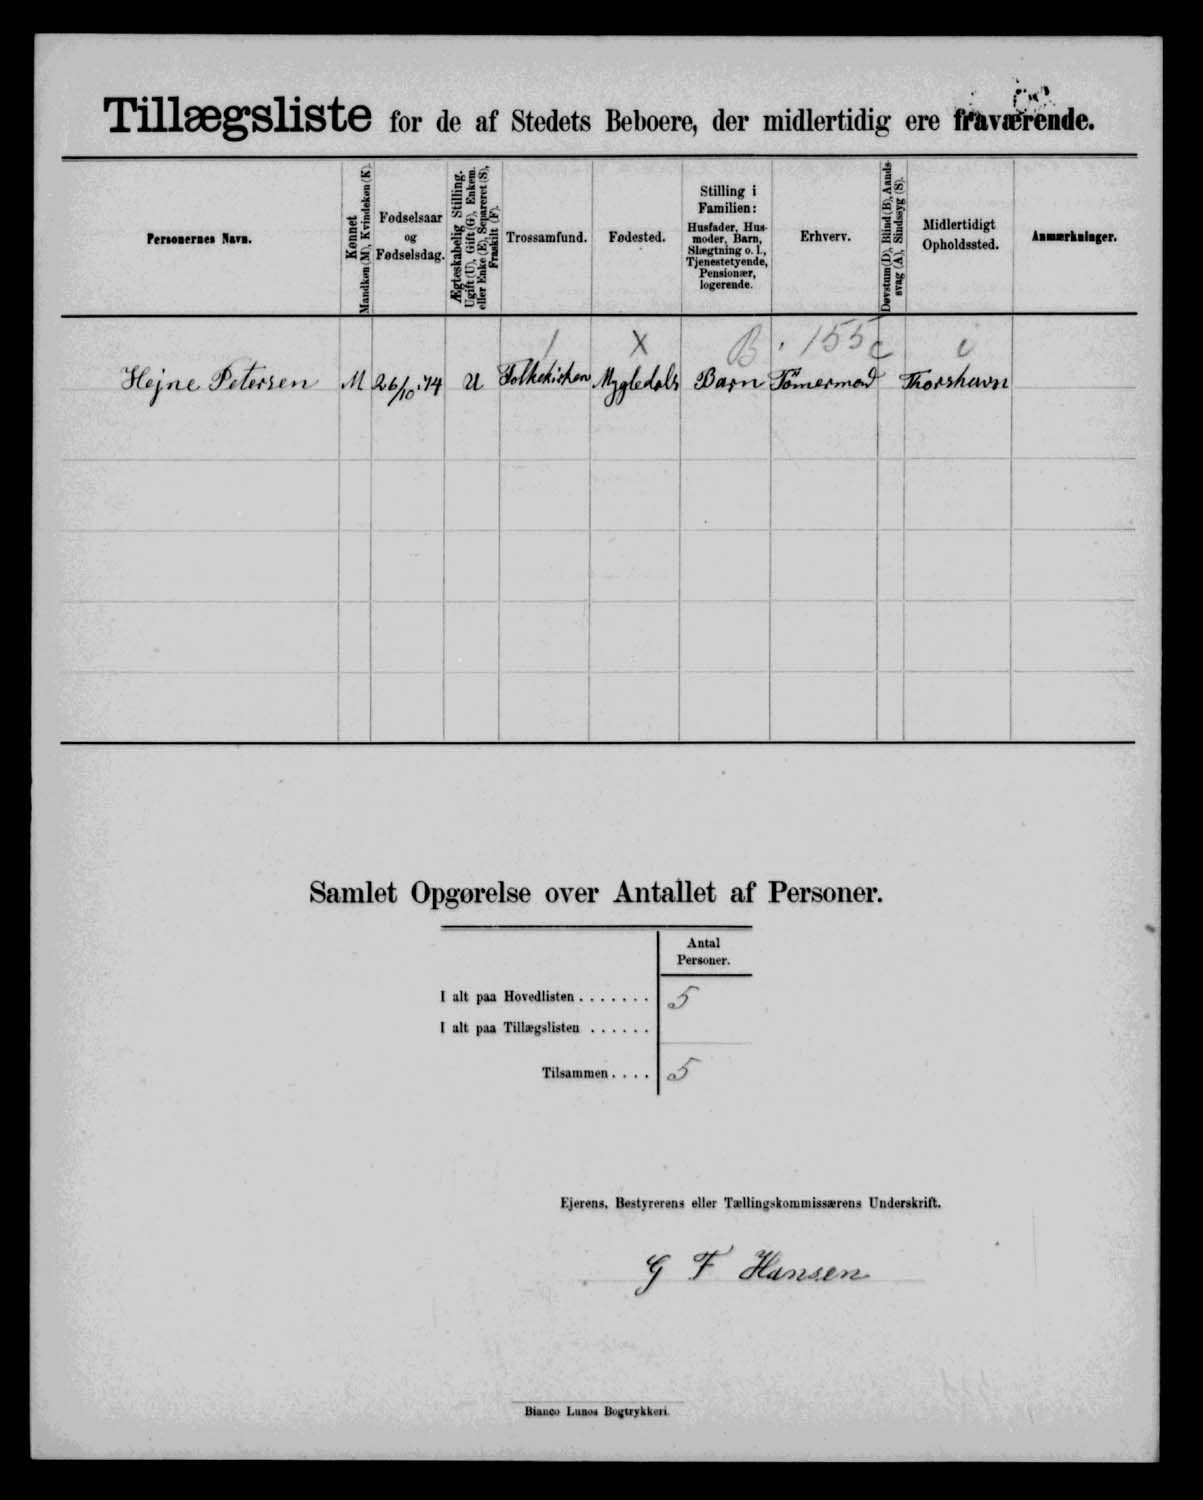 Tillægsliste for de af Stedets Beboere, der midlertidig ere fraværende.
Personernes Navn.
Kønnet
Mandkøn (M), Kvindekøn (K).
Fødselsaar
og
Fødselsdag.
Ægteskabelig Stilling.
Ugift (U), Gift (G), Enkem.
eller Enke (E), Separeret (S),
Fraskilt (F).
Trossamfund.
Fødested.
Stilling i
Familien:
Husfader, Hus-
moder, Barn,
Slægtning o. l.,
Tjenestetyende,
Pensionær,
logerende.
Erhverv.
Døvstum (D), Blind (B), Aands-
svag (A), Sindssyg (S).
Midlertidigt
Opholdssted.
Anmærkninger.
/ X B 155 c
Hejne Petersen M 26/10 74 U Folkekirken Mygledals Barn Tömermand Thorshavn
Samlet Opgørelse over Antallet af Personer.
Antal
Personer.
I alt paa Hovedlisten . . . . . . . 5
I alt paa Tillægslisten . . . . . .
Tilsammen . . . . 5
Ejerens, Bestyrerens eller Tællingskommissærens Underskrift.
G F Hansen
Bianco Lunos Bogtrykkeri.